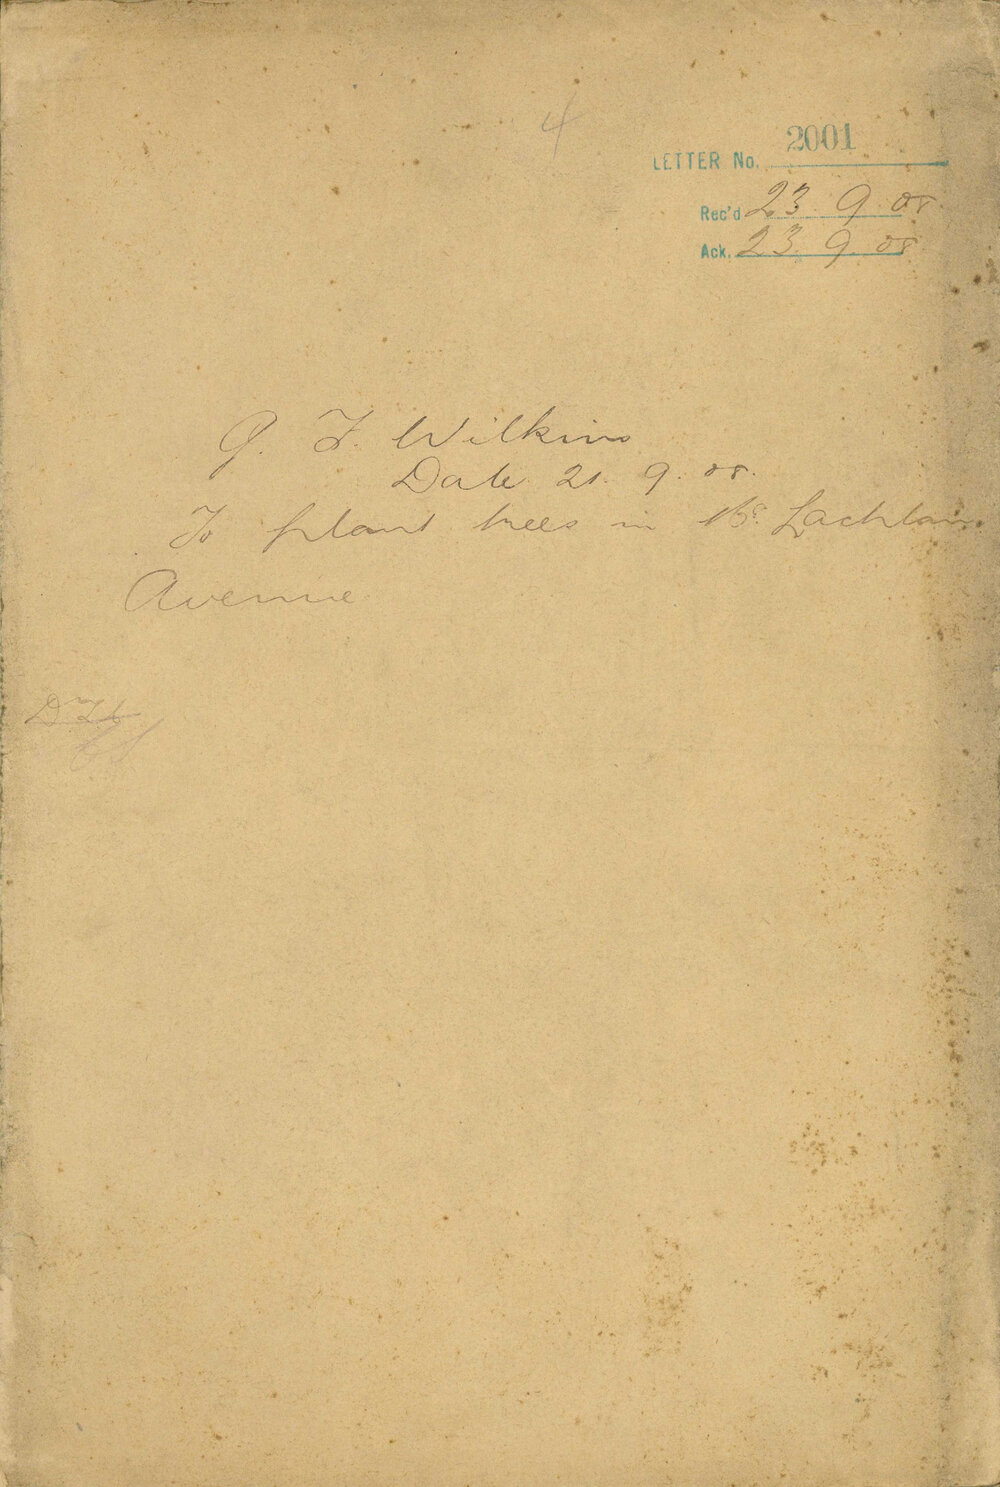 4
LETTER No. 2001
Rec'd 23. 9. 08.
Ack. 23. 9. 08
G. F. Wilkins
Date 21. 9. 08.
To plant trees in Mc Lachlan
Avenue